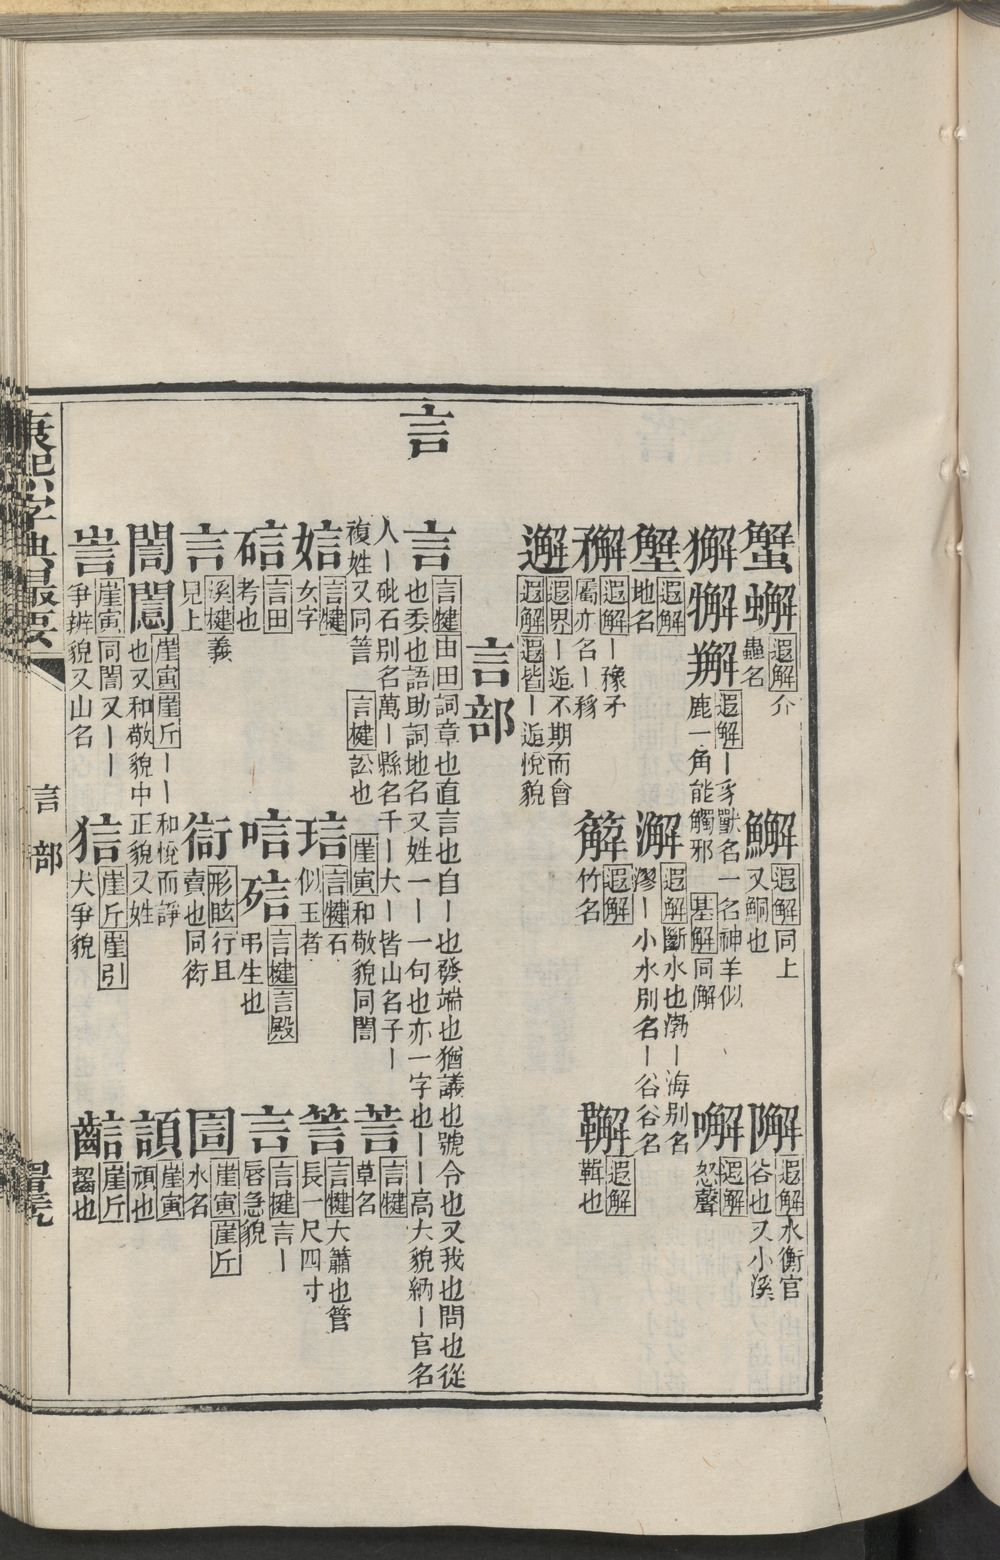 蟹蠏 遐解介
蟲名
鱰 遐解同上
又鮦也
𨼬 遐解水衡官
谷也又小溪
獬㺊䍒 遐解丨豸獸名一名神羊似
鹿一角能觸邪 基解同解
㗿 遐解
怒聲
遐解
地名
澥 遐解斷水也渤丨海别名
漻丨小水別名丨谷谷名
遐解丨豫矛
屬亦名丨𥎆
遐解
竹名
遐解
鞾也
邂 遐界丨逅不期而會
遐解遐皆丨逅悅貌
言部
言
言 言犍由田詞章也直言也自丨也發端也猶議也號令也又我也問也從
也委也語助詞地名又姓一丨一句也亦一字也丨丨高大貌納丨官名
人丨砒石别名萬丨縣名千丨大丨皆山名子丨
複姓又同䇾 言犍訟也 崖寅和敬貌同誾
䓂 言犍
草名
㛃 言犍
女字
琂 言犍石
似玉者
䇾 言犍大簫也管
長一尺四寸
䂩 言田
考也
唁䛘 言犍言殿
弔生也
言 言犍言丨
唇急貌
䇾 溪犍義
見上
衒 形眩行且
賣也同衒
圁 崖寅崖斤
水名
誾誾 崖寅崖斤丨丨和悅而諍
也又和敬貌中正貌又姓
崖寅
頑也
訔 崖寅同誾又丨丨
爭辨貌又山名
狺 崖斤崖引
犬爭貌
齗 崖斤
齧也
康熙字典最要
言部